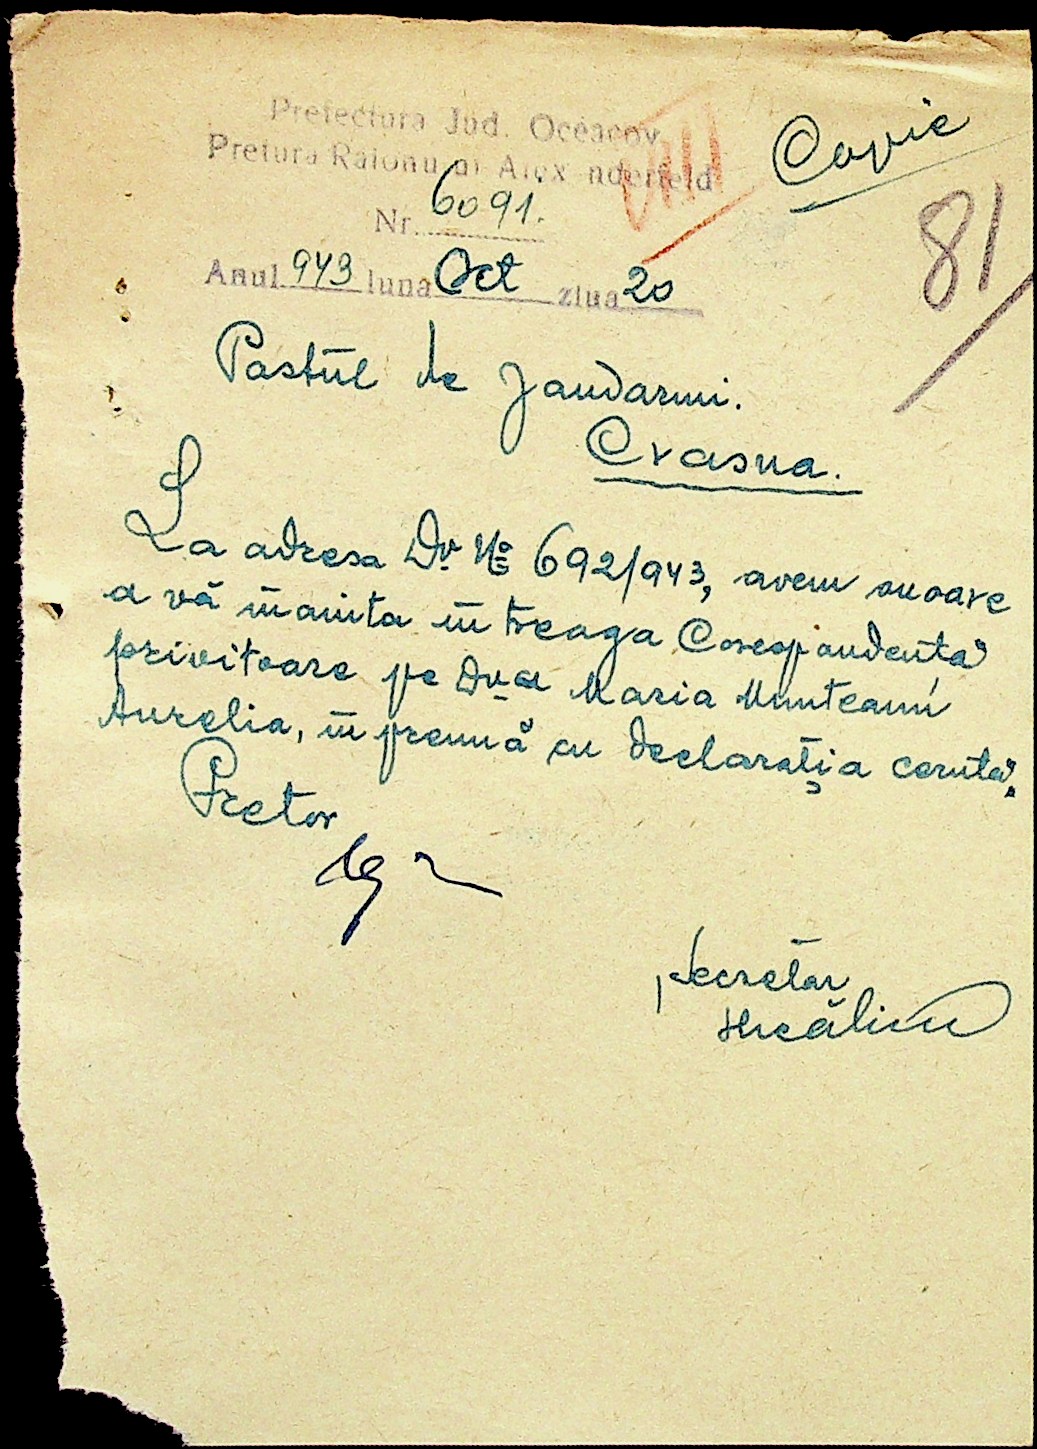 Prefectura Jud. Oceacov
Pretura Raionului Alexanderfeld
Copie
VIII
81
Nr. 6091.
Anul 943 luna Oct ziua 20
Postul de Jandarmi.
Crasna.
La adresa Dv. No 692/943, avem onoare
a vă înainta întreaga Corespondență
privitoare pe Dv-ra Maria Munteanu
Aurelia, împreună cu declarația cerută.
Pretor
Secretar